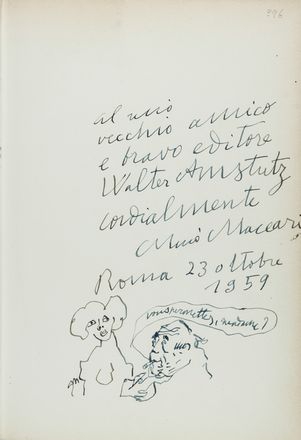 296
al mio
vecchio amico
e bravo editore
Walter Amstutz
cordialmente
Mino Maccari
Roma 23 ottobre
1959
vous permettez, madame?